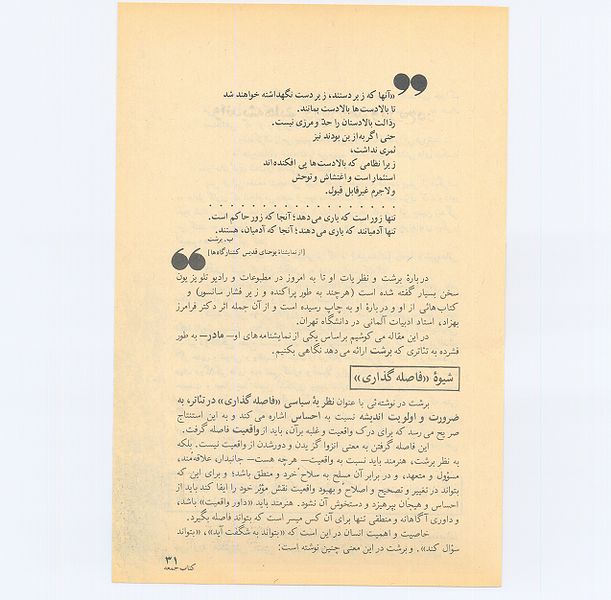 «آنها که زیر دستند، زیر دست نگهداشته خواهند شد
تا بالادست‌ها بالادست بمانند.
رذالت بالادستان را حدّ و مرزی نیست.
حتی اگر به از این بودند نیز
ثمری نداشت،
زیرا نظامی که بالادست‌ها پی افکنده‌اند
استثمار است و اغتشاش و توحش
ولاجرم غیرقابل قبول.
. . . . . . . . . . . . . . . . . . .
تنها زور است که یاری می‌دهد؛ آنجا که زور حاکم است.
تنها آدمیانند که یاری می‌دهند؛ آنجا که آدمیان، هستند.
ب. برشت
[از نمایشنامهٔ یوحنای قدیس کشتارگاه‌ها]
دربارهٔ برشت و نظریات او تا به امروز در مطبوعات و رادیو تلویزیون
سخن بسیار گفته شده است (هرچند به طور پراکنده و زیر فشار سانسور) و
کتاب‌هائی از او و دربارهٔ او به چاپ رسیده است و از آن جمله اثر دکتر فرامرز
بهزاد، استاد ادبیات آلمانی در دانشگاه تهران.
در این مقاله می کوشیم براساس یکی از نمایشنامه‌های او— مادر— به طور
فشرده به تئاتری که برشت ارائه می دهد نگاهی بکنیم.
شیوهٔ «فاصله گذاری»
برشت در نوشته‌ئی با عنوان نظریهٔ سیاسی «فاصله گذاری» در تئاتر، به
ضرورت و اولویت اندیشه نسبت به احساس اشاره می کند و به این استنتاج
صریح می رسد که برای درک واقعیت و غلبه برآن، باید از واقعیت فاصله گرفت.
این فاصله گرفتن به معنی انزوا گزیدن و دورشدن از واقعیت نیست. بلکه
به نظر برشت، هنرمند باید نسبت به واقعیت— هر چه هست— جانبدار، علاقه‌مند،
مسؤول و متعهد، و در برابر آن مسلح به سلاح خرد و منطق باشد؛ و برای این که
بتواند در تغییر و تصحیح و اصلاح و بهبود واقعیت نقش مؤثر خود را ایفا کند باید از
احساس و هیجان بپرهیزد و دستخوش آن نشود. هنرمند باید «داور واقعیت» باشد،
و داوری آگاهانه و منطقی تنها برای آن کس میسر است که بتواند فاصله بگیرد.
خاصیت و اهمیت انسان در این است که «بتواند به شگفت آید»، «بتواند
سؤال کند». و برشت در این معنی چنین نوشته است:
۳۱
کتاب جمعه